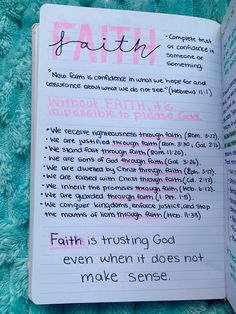 FAITH
faith
• Complete trust
or confidence in
someone or
something.
"Now faith is confidence in what we hope for and
assurance about what we do not see." (Hebrews 11:1)
Without FAITH, it is
impossible to please God.
• We receive righteousness through faith (Rom. 3:22).
• We are justified through faith (Rom. 3:30, Gal. 2:16).
• We stand fast through faith (Rom. 11:20).
• We are sons of God through faith (Gal. 3:26).
• We are dwelled by Christ through faith (Eph. 3:17).
• We are raised with Christ through faith (Col. 2:12).
• We inherit the promises through faith (Heb. 6:12).
• We are guarded through faith (1 Pet. 1:5).
• We conquer kingdoms, enforce justice, and stop
the mouths of lions through faith (Heb. 11:33)
Faith is trusting God
even when it does not
make sense.